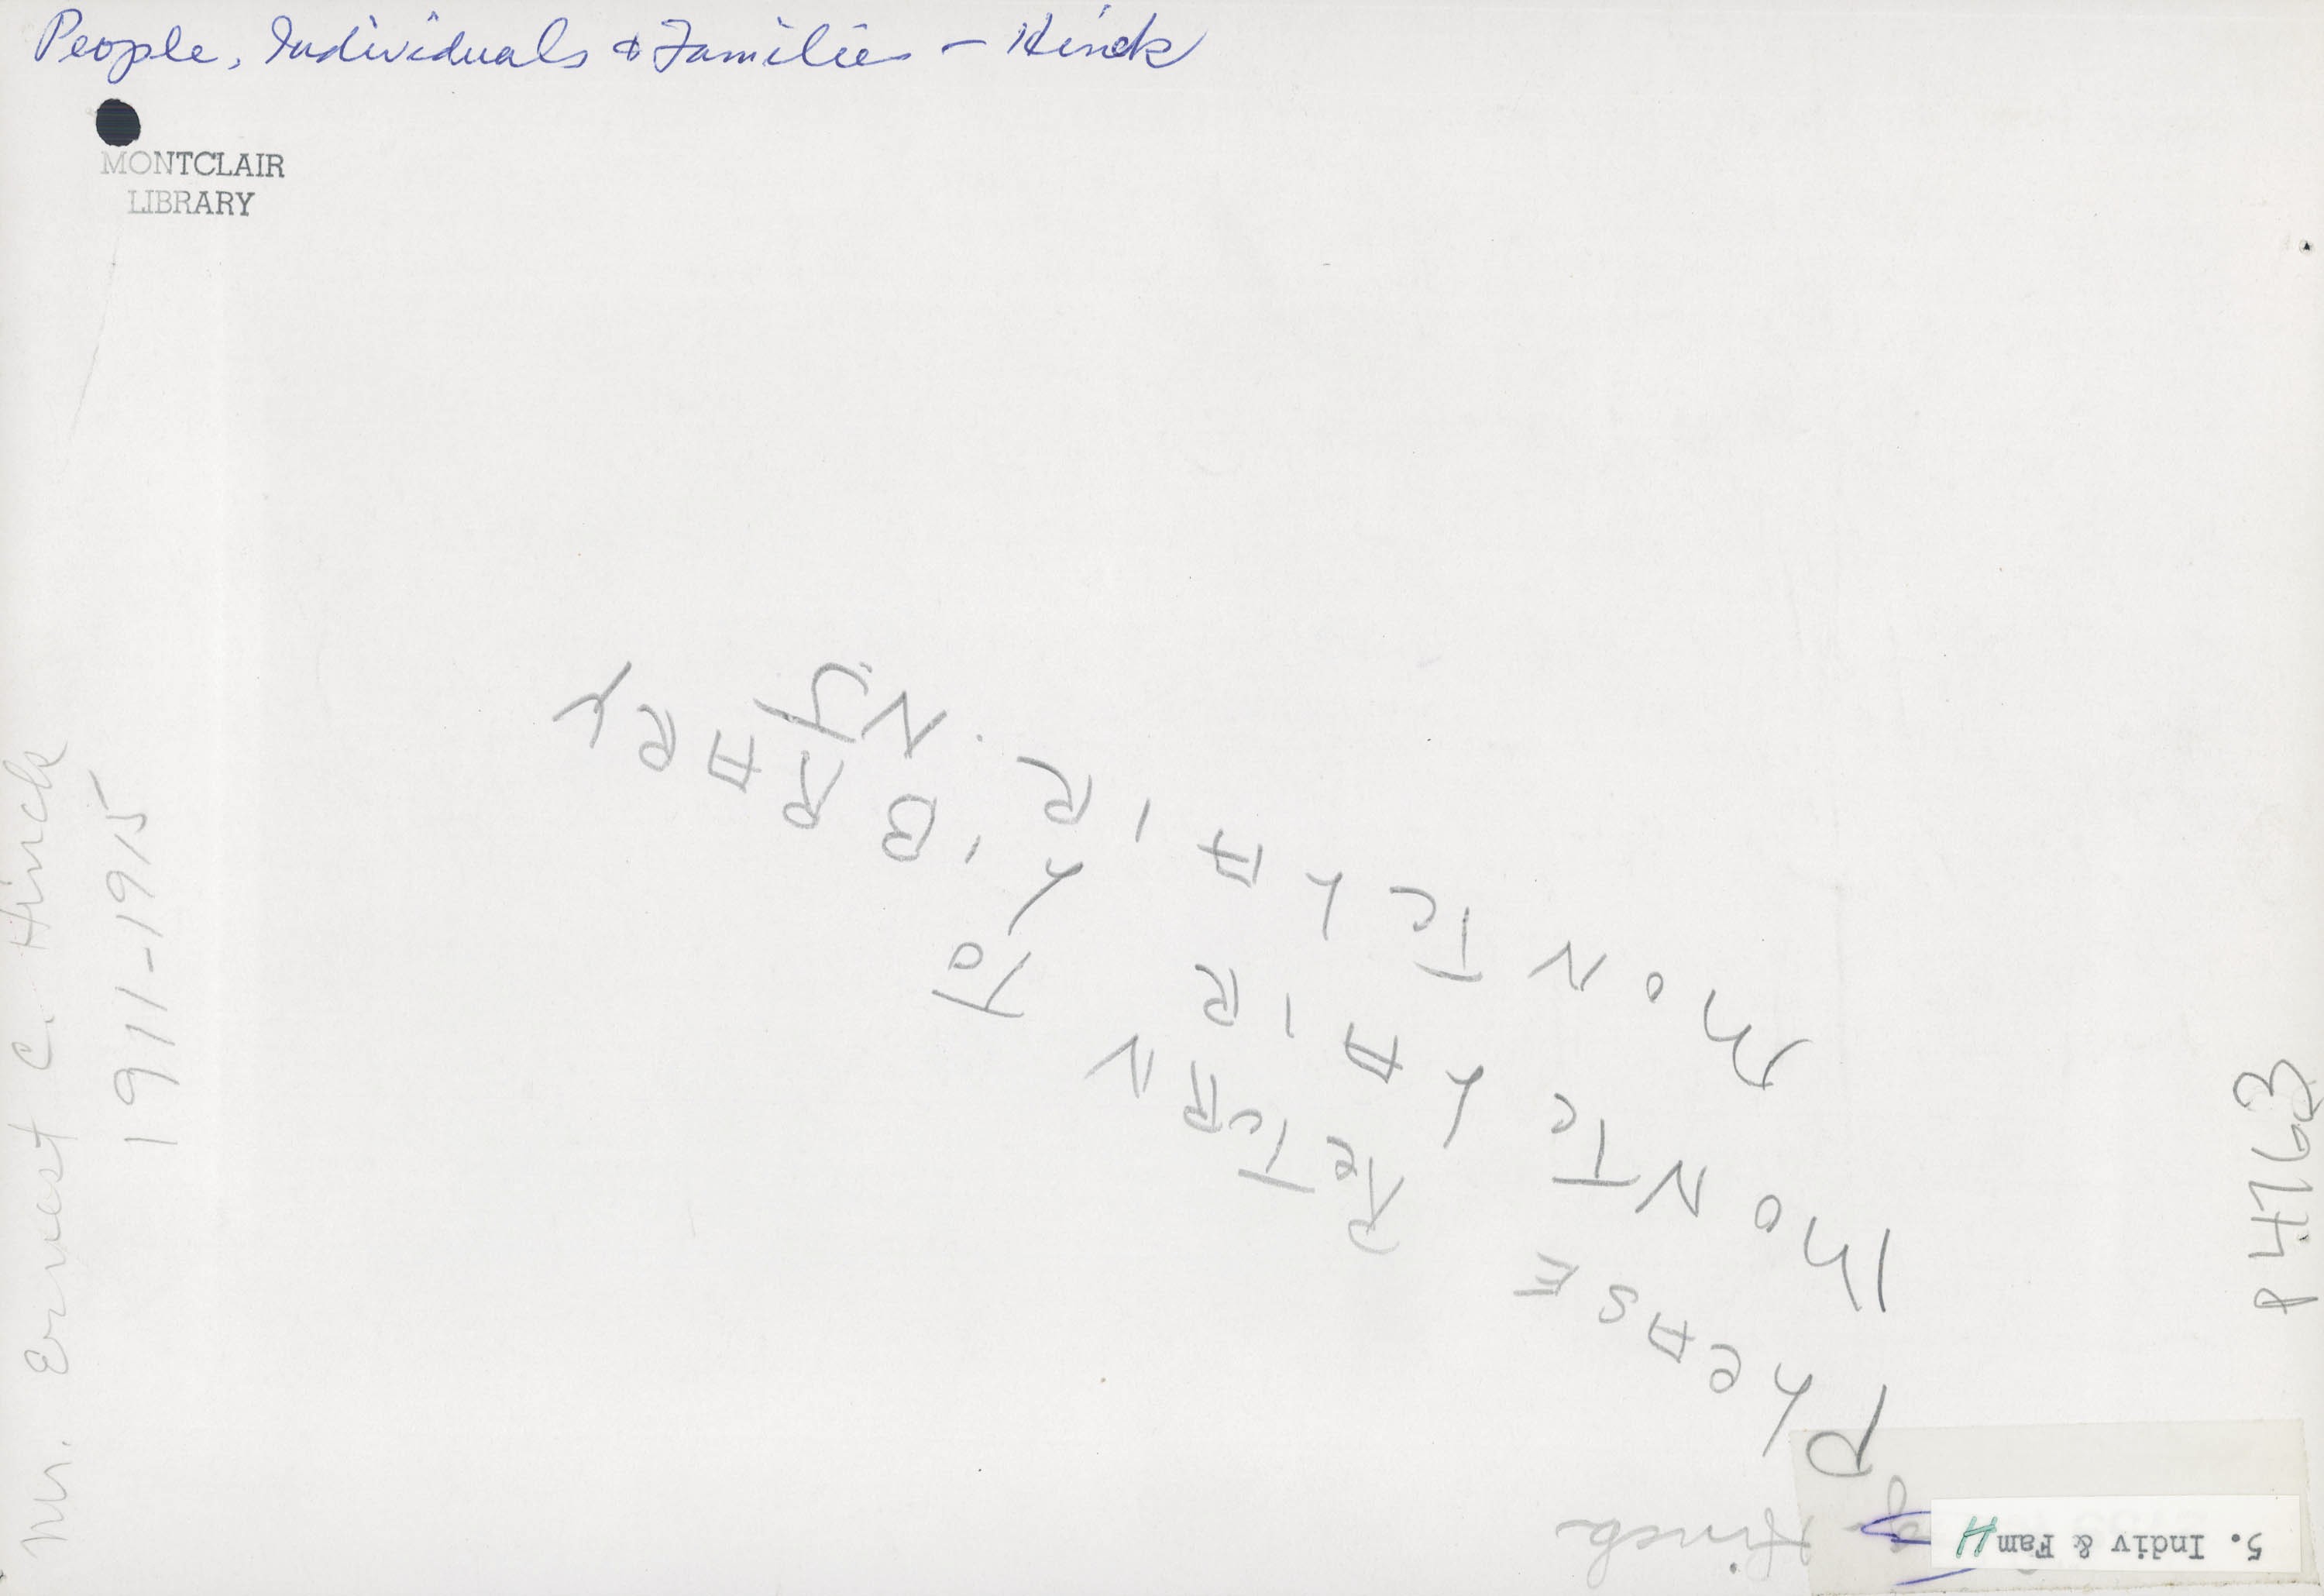 People, Individuals & Families - Hinck
MONTCLAIR
LIBRARY
Mr. Ernest C. Hinck
1911-1915
PLeASE ReTURN To
MoNTcLAIR LiBRARY
MoNTCLAIR. N.J.
P4763
Hinck
5. Indiv & Fam H